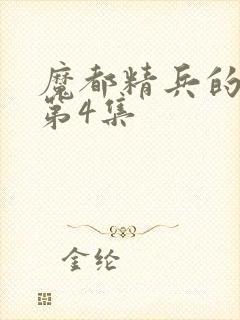 魔都精兵的
第4集
金纶